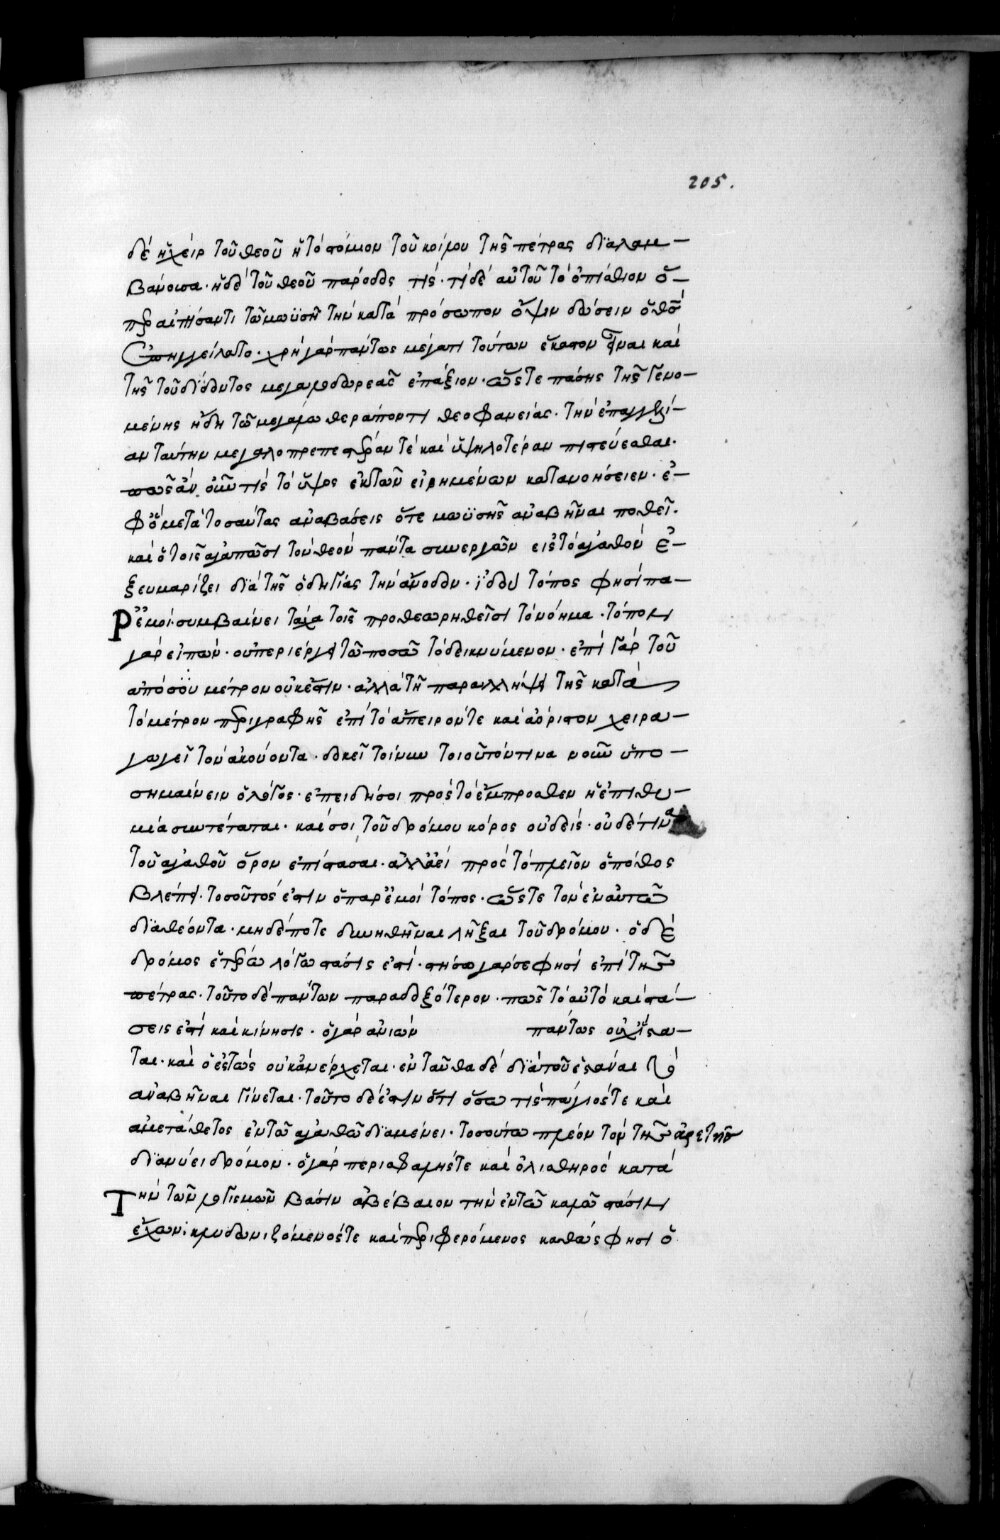 205.
δὲ ἡ χεὶρ τοῦ θεοῦ ἡ τὸ στόμιον τοῦ κοίλου τῆς πέτρας διαλαμ-
βάνουσα· ἡ δὲ τοῦ θεοῦ πάροδος τίς· τί δὲ αὐτοῦ τὸ ὀπίσθιον ὃ-
περ αἰτήσαντι τῶ μωϋσῆ τὴν κατὰ πρόσωπον ὄψιν δώσειν ὁ θεὸς
ἐπηγγείλατο· χρὴ γὰρ πάντως μέγα τι τούτων ἕκαστον εἶναι καὶ
τῆς τοῦ διδόντος μεγαλοδωρεᾶς ἐπάξιον· ὥστε πάσης τῆς γενο-
μένης ἤδη τῶ μεγάλω θεράποντι θεοφανείας· τὴν ἐπαγγελί-
αν ταύτην μεγαλοπρεπεστέραν τὲ καὶ ὑψηλοτέραν πιστεύεσθαι·
πῶς ἂν οὖν τίς τὸ ὕψος ἐκ τῶν εἰρημένων κατανοήσειεν· ἐ-
φ' ὃ μετὰ τοσαύτας ἀναβάσεις ὅτε μωϋσῆς ἀναβῆναι ποθεῖ·
καὶ ὁ τοῖς ἀγαπῶσι τὸν θεὸν πάντα συνεργῶν εἰς τὸ ἀγαθὸν ἐ-
ξευμαρίζει διὰ τῆς ὁδηγίας τὴν ἄνοδον· ἰδοὺ τόπος φησὶ πα-
ρ' ἐμοί· συμβαίνει τάχα τοῖς προθεωρηθεῖσι τὸ νόημα· τόπον
γὰρ εἰπὼν· οὐ περιείργει τῶ ποσῶ τὸ δεικνύμενον· ἐπὶ γὰρ τοῦ
ἀπόσου μέτρον οὐκ ἔστιν· ἀλλὰ τῆ παραλλήψει τῆς κατὰ
τὸ μέτρον περιγραφῆς ἐπὶ τὸ ἄπειρόν τε καὶ ἀόριστον χειρα-
γωγεῖ τὸν ἀκούοντα· δοκεῖ τοίνυν τοιοῦτόν τινα νοῦν ὑπο-
σημαίνειν ὁ λόγος· ἐπειδή σοι πρὸς τὸ ἔμπροσθεν ἡ ἐπιθυ-
μία συντέταται· καί σοι τοῦ δρόμου κόρος οὐδείς· οὐδέ τινα
τοῦ ἀγαθοῦ ὅρον ἐπίστασαι· ἀλλ' ἀεὶ πρὸς τὸ πλεῖον ὁ πόθος
βλέπει· τοσοῦτός ἐστιν ὁ παρ' ἐμοὶ τόπος· ὥστε τὸν ἐν αὐτῶ
διαθέοντα· μηδέποτε δυνηθῆναι λῆξαι τοῦ δρόμου· ὁ δὲ
δρόμος ἑτέρω λόγω στάσις ἐστί· στήσω γάρ σε φησὶ ἐπὶ τῆς
πέτρας· τοῦτο δὲ πάντων παραδοξότερον· πῶς τὸ αὐτὸ καὶ στά-
σεις ἐστὶ καὶ κίνησις· ὁ γὰρ ἀνιὼν πάντως οὐχ ἵστα-
ται· καὶ ὁ ἑστὼς οὐκ ἀνέρχεται· ἐνταῦθα δὲ διὰ τοῦ ἑστάναι τὸ
ἀναβῆναι γίνεται· τοῦτο δέ ἐστιν ὅτι ὅσω τὶς πάγιός τε καὶ
ἀμετάθετος ἐν τῶ ἀγαθῶ διαμένει· τοσούτω πλέον τὸν τῆς ἀρετῆς
διανύει δρόμον· ὁ γὰρ περισφαλής τε καὶ ὀλισθηρὸς κατὰ
τὴν τῶν λογισμῶν βάσιν ἀβέβαιον τὴν ἐν τῶ καλῶ στάσιν
ἔχων· κλυδωνιζόμενός τε καὶ περιφερόμενος καθώς φησι ὁ